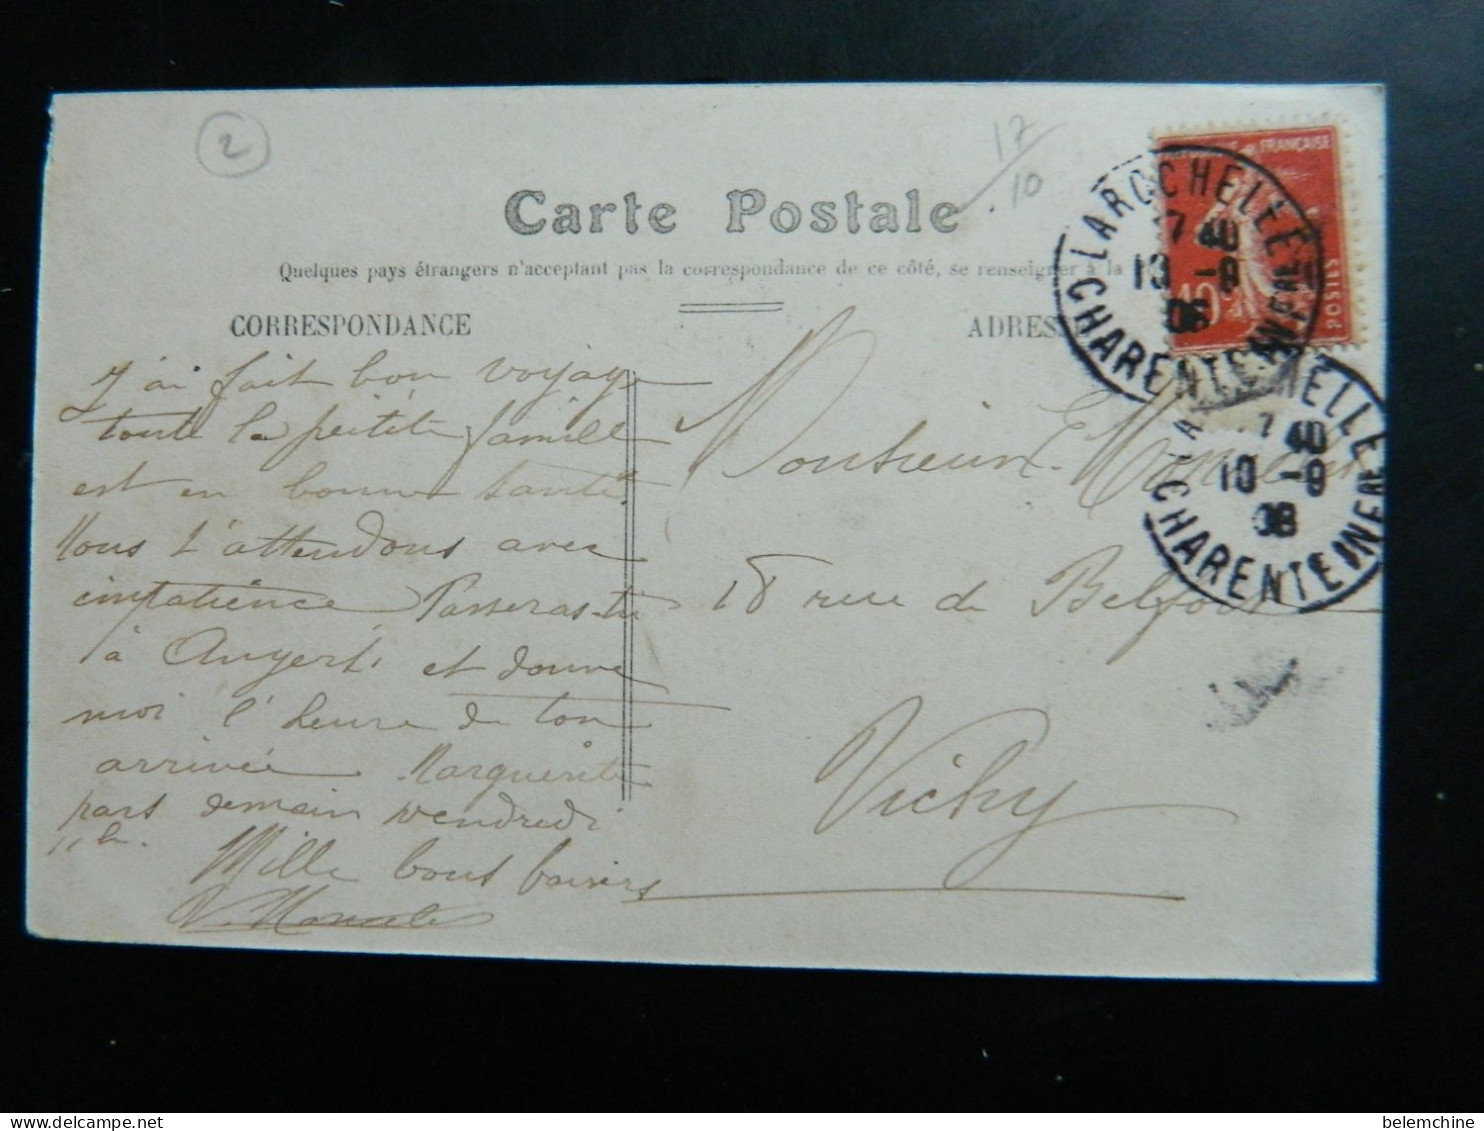 2
17
10
Carte Postale
Quelques pays étrangers n'acceptant pas la correspondance de ce côté, se renseigner à la
CORRESPONDANCE
ADRES
FRANÇAISE
POSTES
10
LA ROCHELLE
7 40
10 -9
08
CHARENTE INFRE
HELLE
7 40
10 -9
08
CHARENTE INFRE
J'ai fait bon voyage
toute la petite famille
est en bonne santé
Nous t'attendons avec
impatience Passeras-tu
à Angers et donne
moi l'heure de ton
arrivée Marguerite
pars demain vendredi
11 h.
Mille bons baisers
Monsieur
18 rue de Belfort
Vichy
belemchine